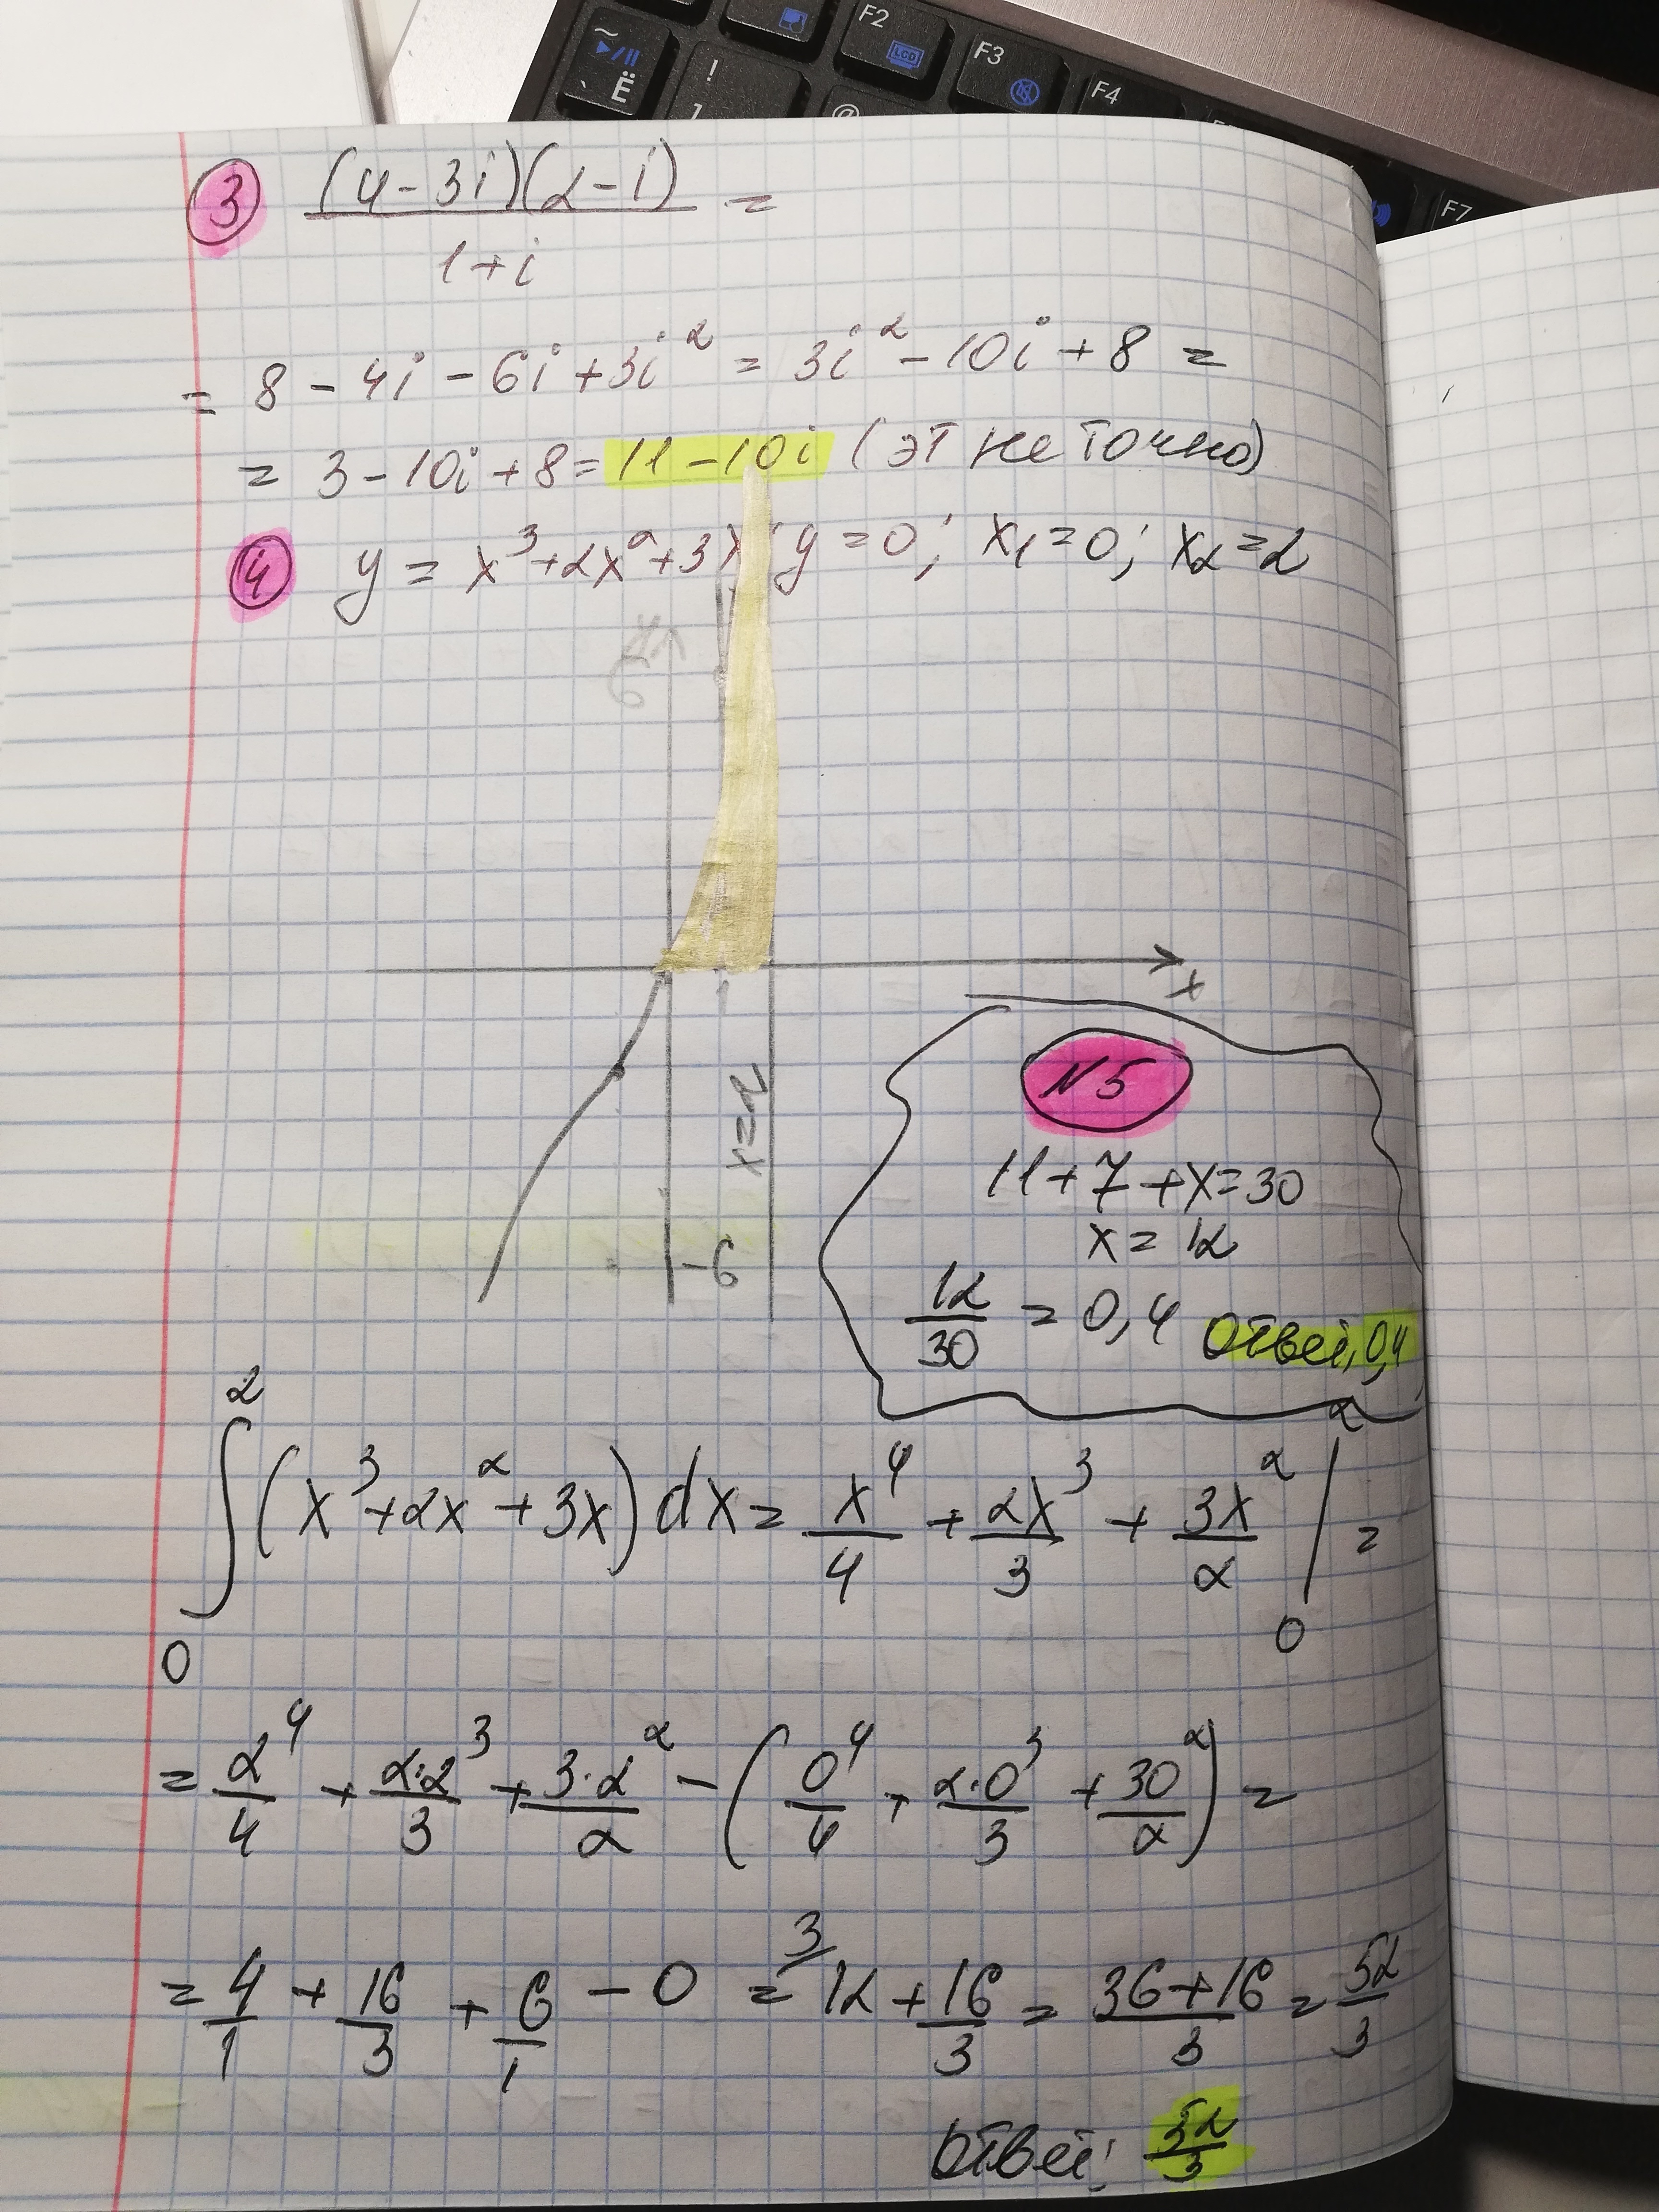 F2
LCD
F3
F4
F7
~
Ё
!
1
@
3 (4-3i)(2-i) =
1+i
= 8 - 4i - 6i + 3i² = 3i² - 10i + 8 =
= 3 - 10i + 8 = 11 - 10i (эт не точно)
4 y = x³+2x²+3x; y = 0; x₁=0; x₂=2
6
x
x=2
-6
N5
11+7+x=30
x = 12
12/30 = 0,4 Ответ, 0,4
∫₀² (x³+2x²+3x) dx = x⁴/4 + 2x³/3 + 3x²/2 |₀² =
= 2⁴/4 + 2·2³/3 + 3·2²/2 - (0⁴/4 + 2·0³/3 + 30²/2) =
= 4/1 + 16/3 + 6/1 - 0 = ³/12 + 16/3 = 36+16/3 = 52/3
Ответ: 52/3